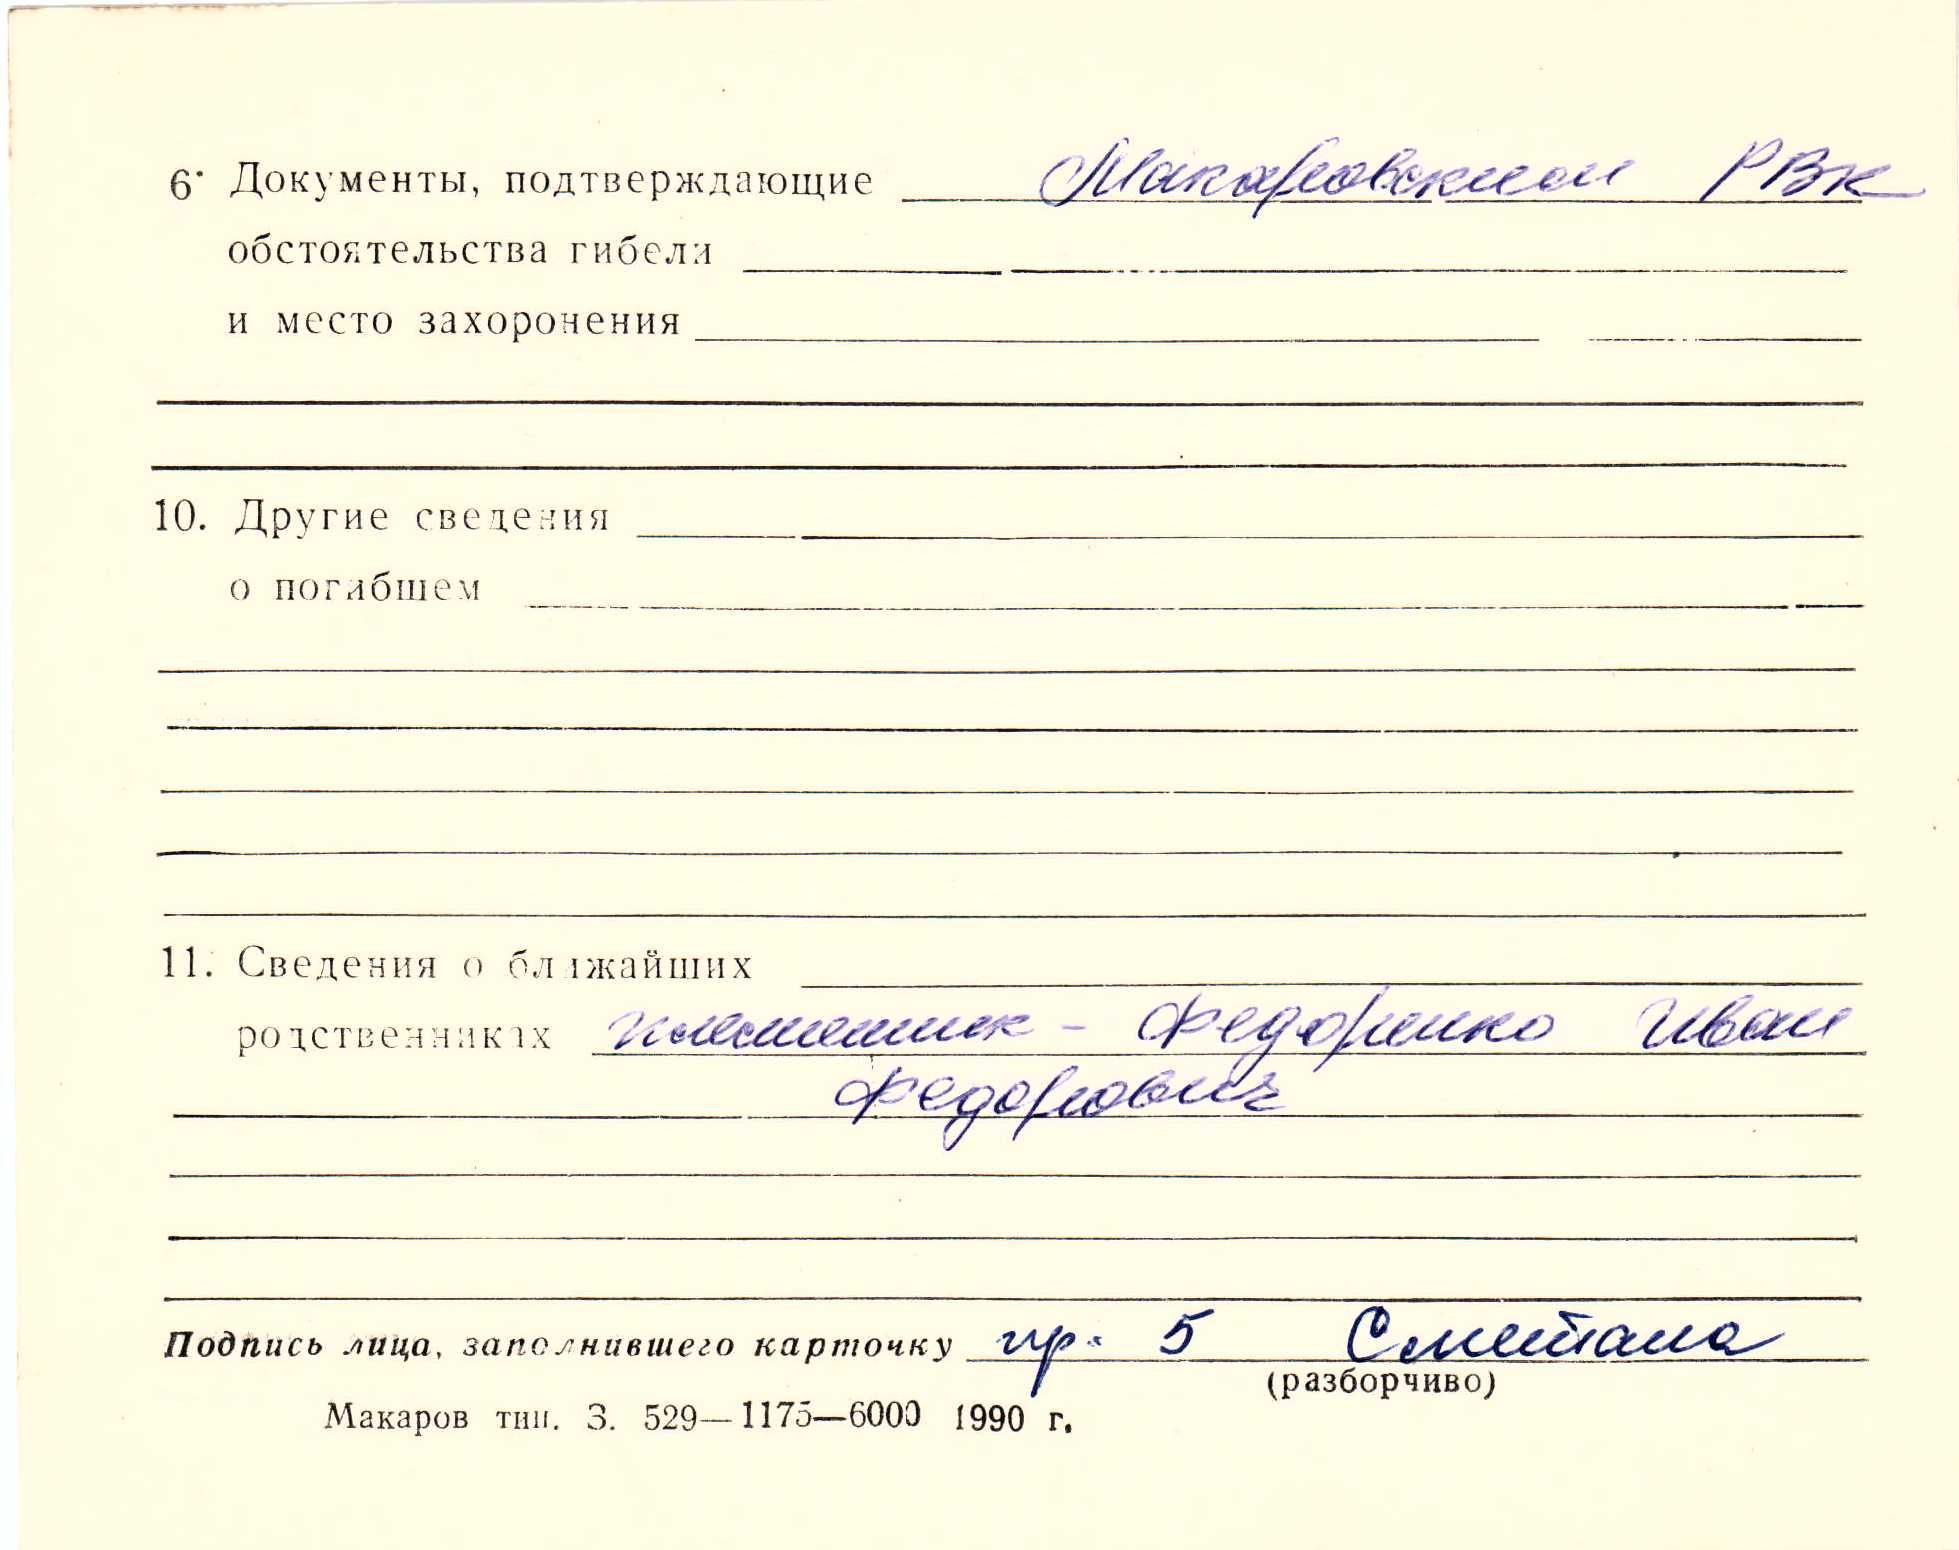 6. Документы, подтверждающие Макаровским РВК
обстоятельства гибели
и место захоронения
10. Другие сведения
о погибшем
11. Сведения о ближайших
родственниках племенник - Федоренко Иван
Федорович
Подпись лица, заполнившего карточку пр. 5 Сметана
(разборчиво)
Макаров тип. З. 529—1175—6000 1990 г.